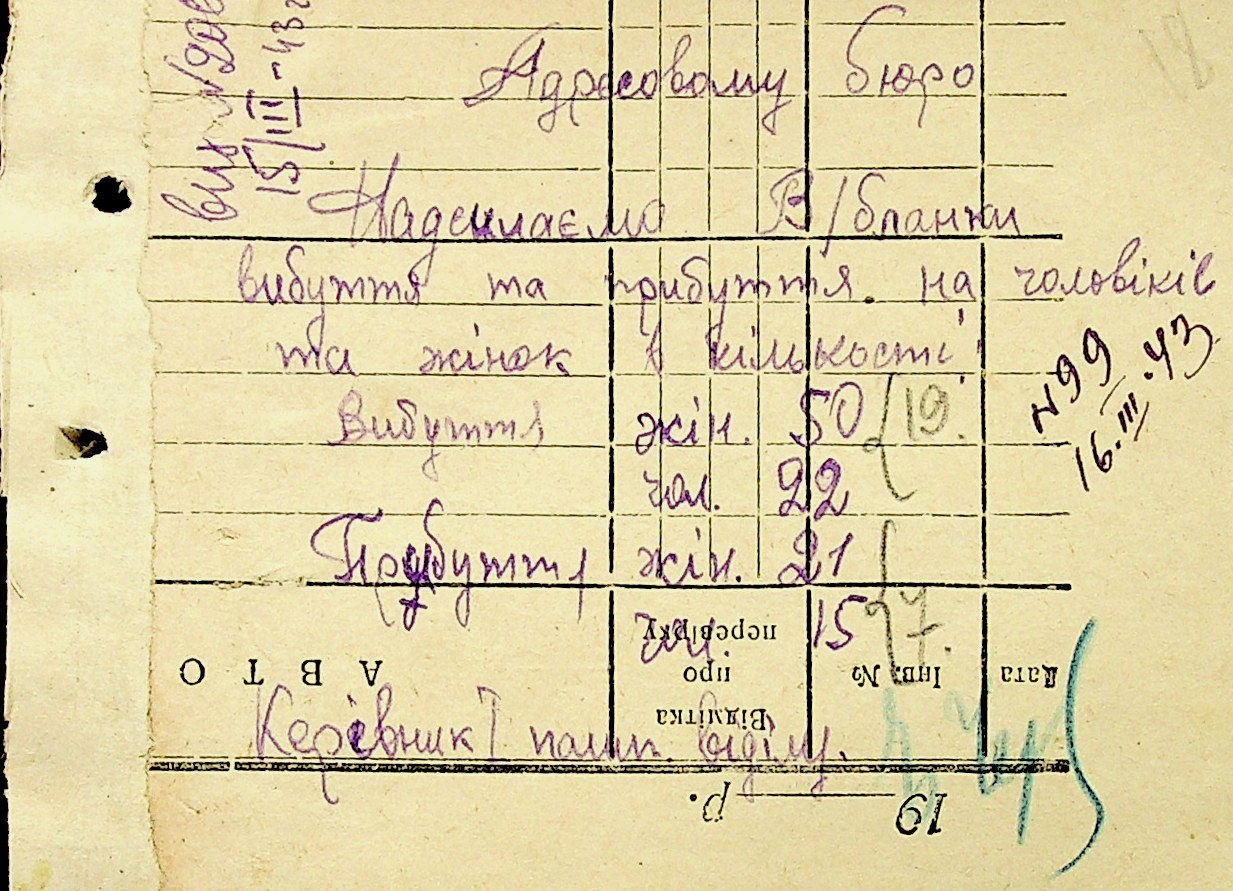 вих №206
15/III-43 г
Адресовому бюро
Надсилаємо В/бланки
вибуття та прибуття на чоловіків
та жінок в кількості:
Вибуття жін. 50 {19.
чол. 22
Прибуття жін. 21 {7.
чол. 15
Керівник І пасп. віділу.
№99
16.III.43
АВТО
Відмітка
про
перевірку
Інв. №
Дата
19 р.
12